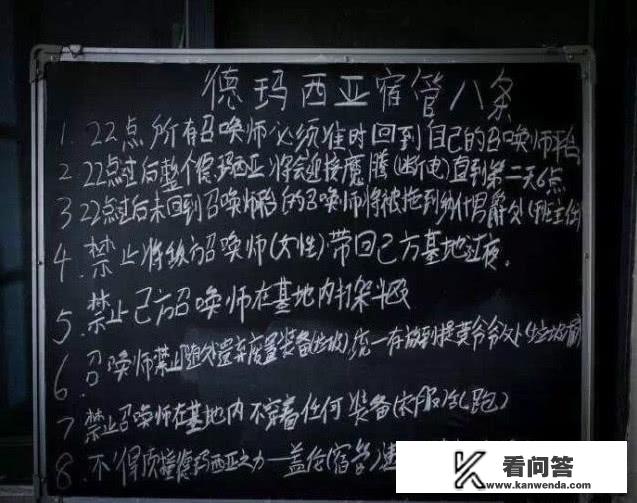 德玛西亚宿管八条
1. 22点所有召唤师必须准时回到自己的召唤师平台
2. 22点过后整个德玛西亚将会迎接魔腾(断电)直到第二天6点
3 22点过后未回到召唤师台的召唤师将被拖到纳什男爵处(班主任
4. 禁止将敌方召唤师(女性)带回己方基地过夜。
5. 禁止己方召唤师在基地内打架斗殴
6. 召唤师禁止随处遗弃废置装备(垃圾)统一存放到提莫爷爷处(垃圾桶
7 禁止召唤师在基地内不穿着任何装备(衣服)
8. 不得顶撞德玛西亚之力—盖伦(宿管)
看问答
www.kanwenda.com